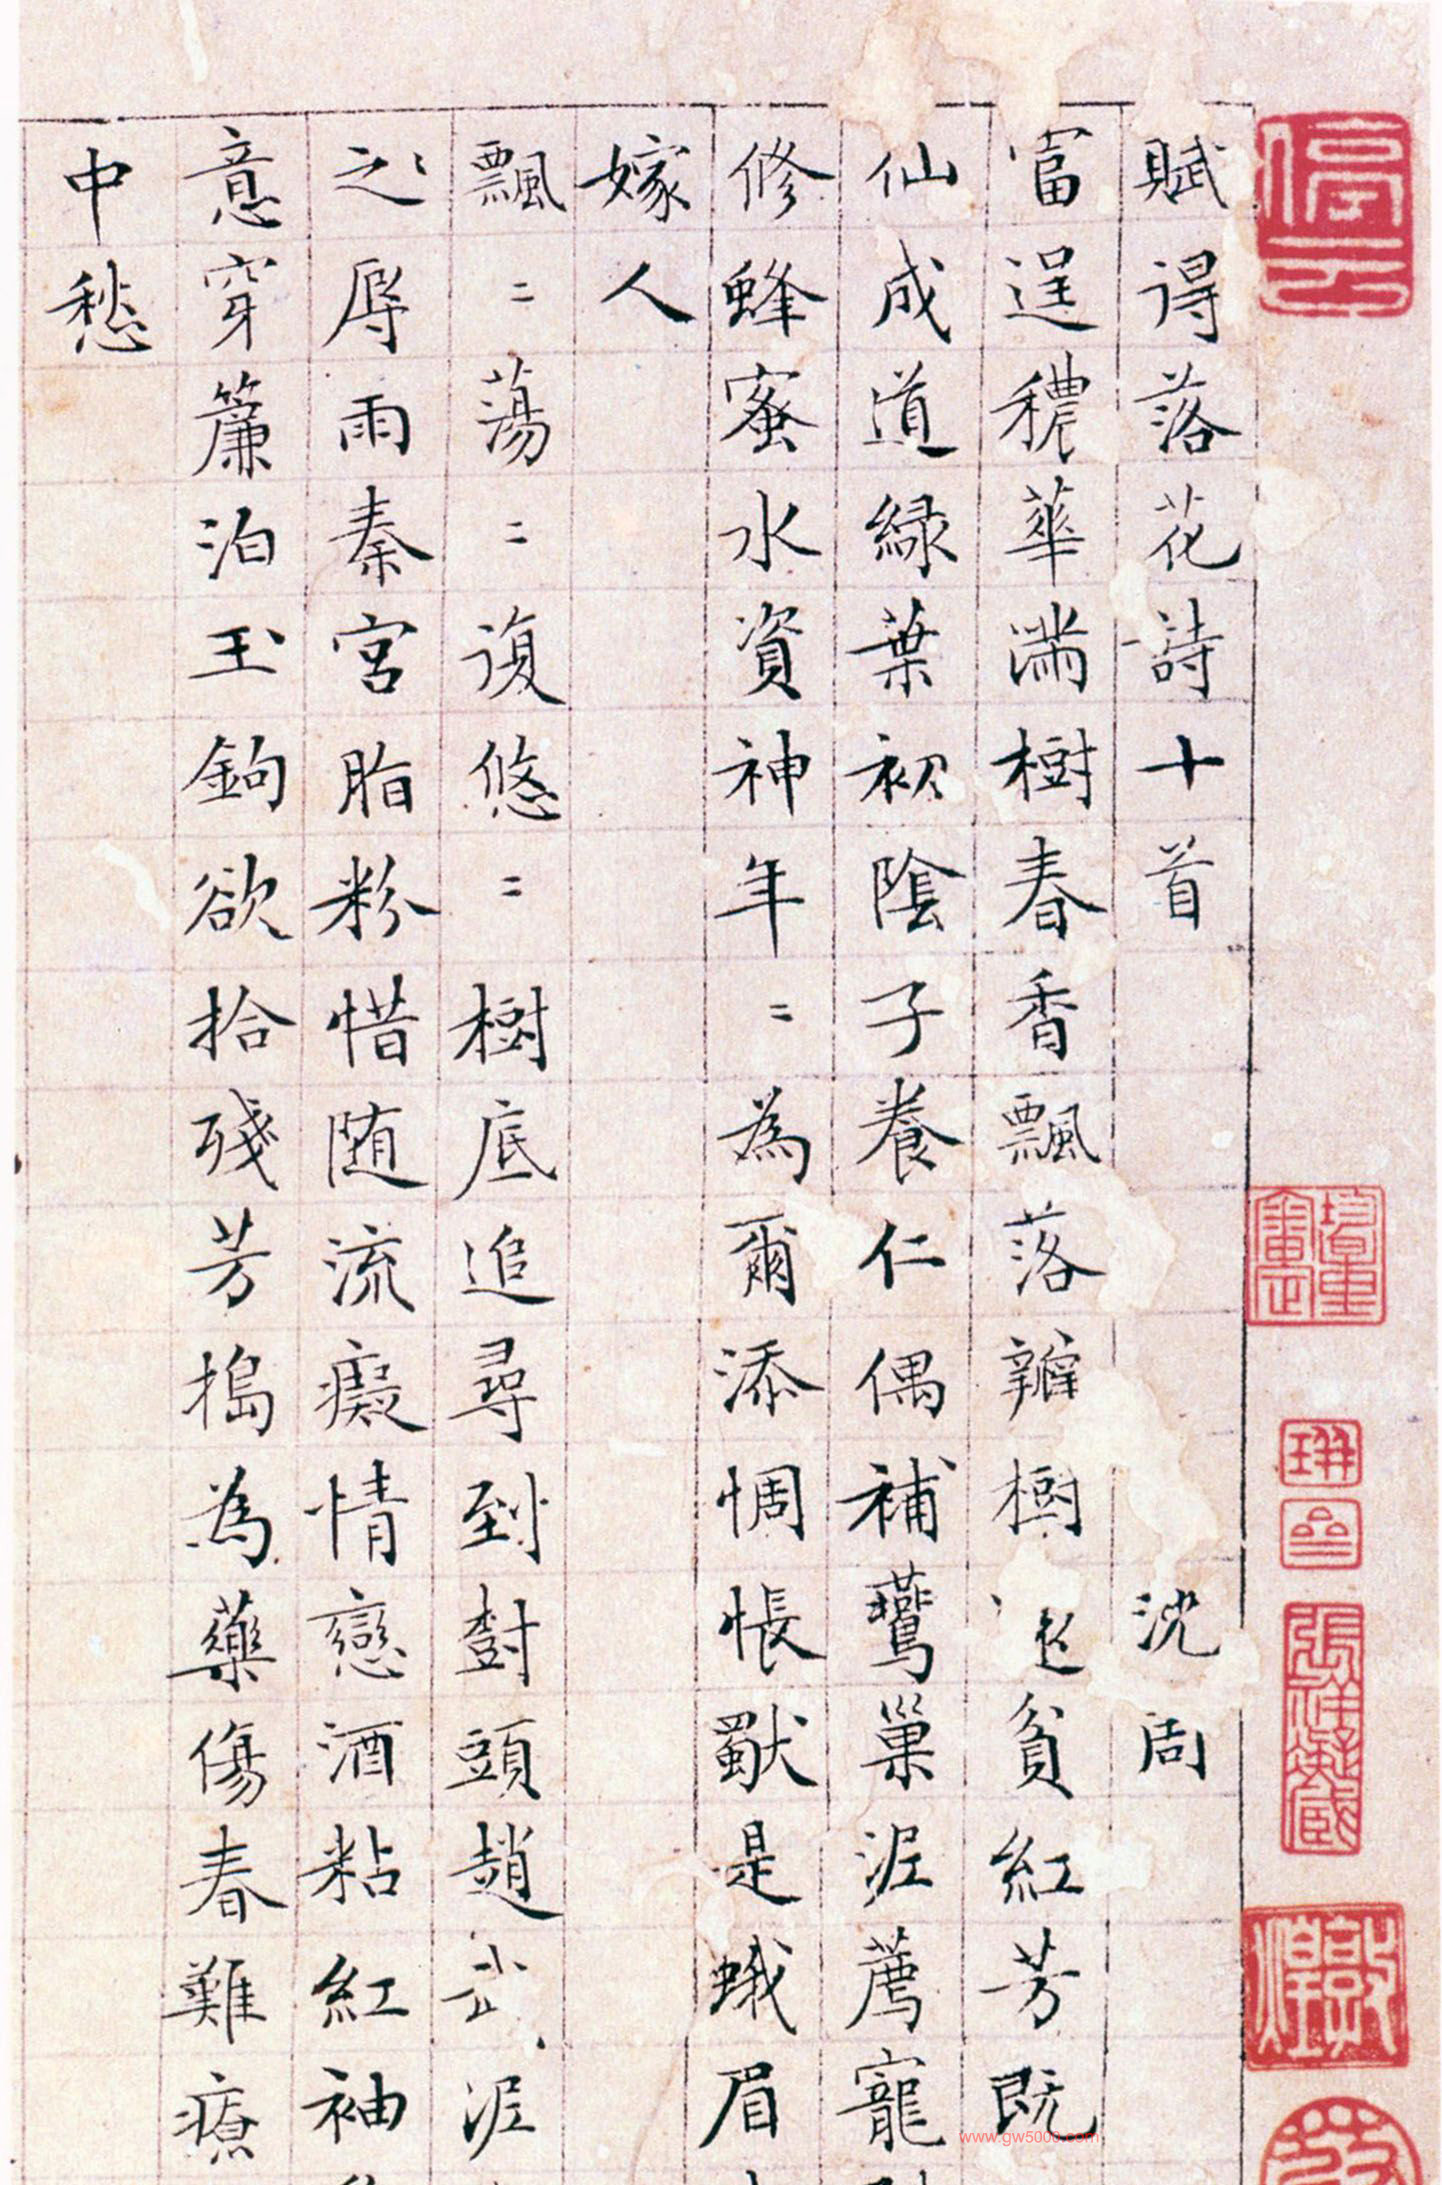 賦得落花詩十首 沈周
富逞穠華滿樹春香飄落瓣樹 貧紅芳既
仙成道綠葉初陰子養仁偶補鷰巢泥薦寵
修蜂蜜水資神年〻為爾添惆悵獸是蛾眉
嫁人
飄〻蕩〻復悠〻樹底追尋到樹頭趙武泥
之辱雨秦宮脂粉惜随流癡情戀酒粘紅袖
意穿簾泊玉鉤欲拾殘芳搗為藥傷春難療
中愁
停云
敦煌
www.gw5000.com